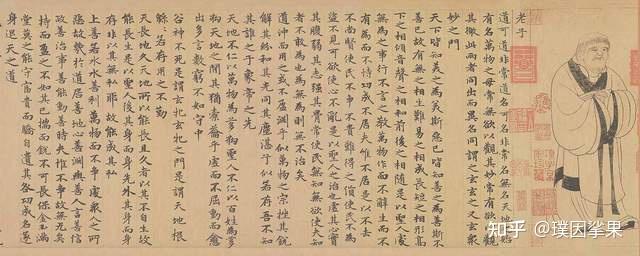 老子
道可道非常道名可名非常名無名天地始
有名萬物之母常無欲以觀其妙常有欲以觀
其徼此兩者同出而異名同謂之玄玄之又玄衆
妙之門
天下皆知美之為美斯惡已皆知善之為善斯不
善已故有無之相生難易之相成長短之相形高
下之相傾音聲之相和前後之相隨是以聖人處
無為之事行不言之教萬物作而不辭生而不
有為而不恃功成不居夫唯不居是以不去
不尚賢使民不爭不貴難得之貨使民不為
盜不見可欲使心不亂是以聖人之治也虛其心實
其腹弱其志強其骨常使民無知無欲使夫知
者不敢為也為無為則無不治矣
道沖而用之或不盈淵乎似萬物之宗挫其銳
解其紛和其光同其塵湛兮似若存吾不知
其誰之子象帝之先
天地不仁以萬物為芻狗聖人不仁以百姓為芻
狗天地之間其猶橐籥乎虛而不屈動而愈
出多言數窮不如守中
谷神不死是謂玄牝玄牝之門是謂天地根
緜緜若存用之不勤
天長地久天地所以能長且久者以其不自生故
能長生是以聖人後其身而身先外其身而身
存非以其無私耶故能成其私
上善若水水善利萬物而不爭處衆人之所
惡故幾於道居善地心善淵與善人言善信
政善治事善能動善時夫惟不爭故無尤矣
持而盈之不如其已揣而銳不可長保金玉滿
堂莫之能守富貴而驕自遺其咎功成名遂
身退天之道
知乎 @璞因挲果